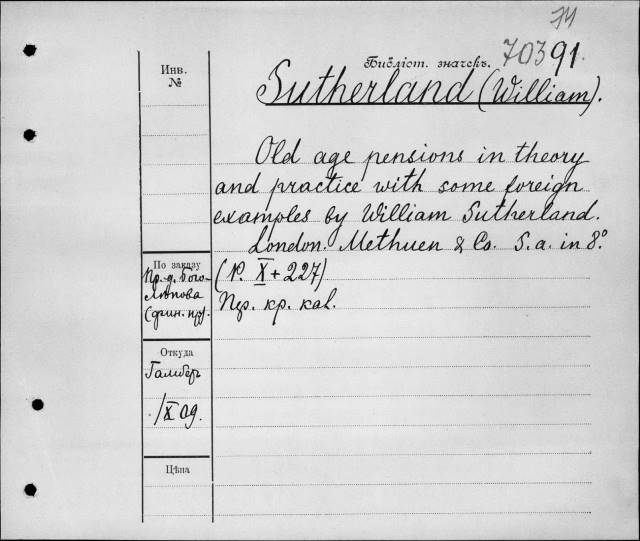 74
Библіот. значекъ. 70391.
Инв.
№
Sutherland (William).
Old age pensions in theory
and practice with some foreign
examples by William Sutherland.
London. Methuen & Co. S. a. in 8º
(P. X + 227)
По заказу
Пр. д. Бого-
лѣпова
(фин. пр).
кр. кал.
Откуда
/X 09.
Цѣна